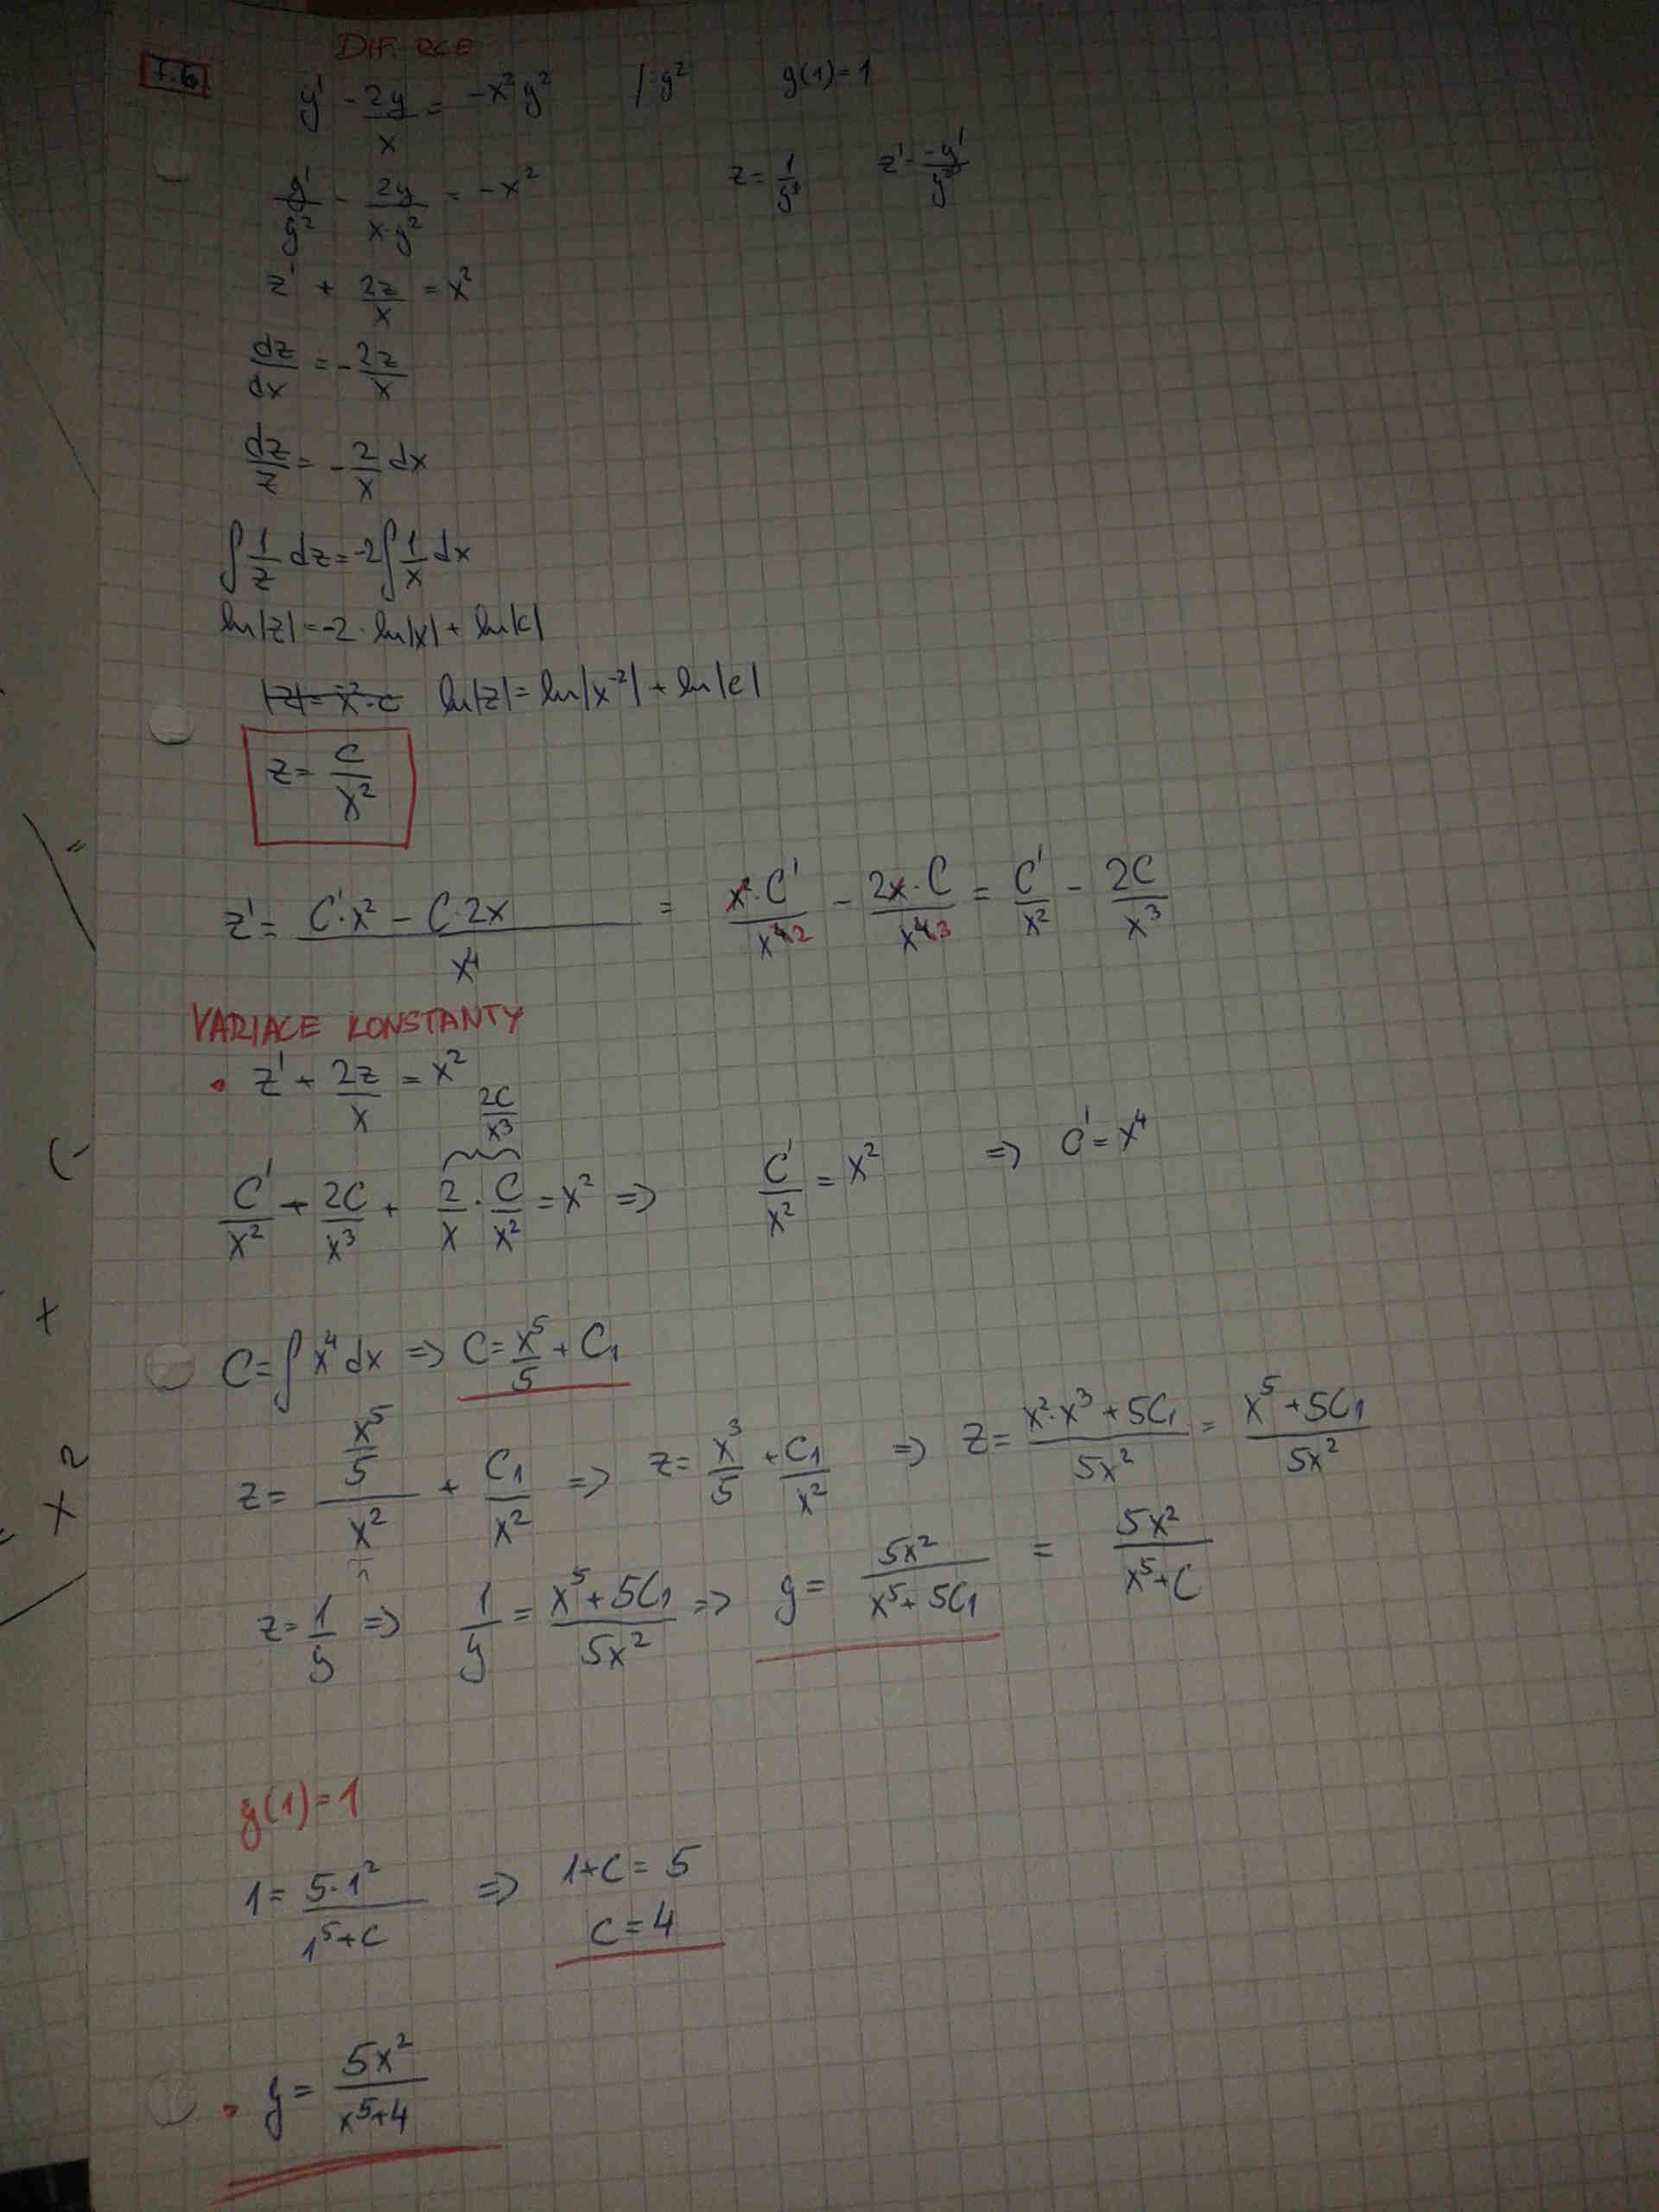 DIF. RCE
7.6
y' - 2y/x = -x²y² /:y² y(1)=1
y'/y² - 2y/(x·y²) = -x² z = 1/y z' = -y'/y²
z' + 2z/x = x²
dz/dx = -2z/x
dz/z = -2/x dx
∫ 1/z dz = -2 ∫ 1/x dx
ln|z| = -2·ln|x| + ln|c|
|z| = x⁻²·c ln|z| = ln|x⁻²| + ln|c|
z = c/x²
z' = (C'·x² - C·2x)/x⁴ = x²·C'/x⁴² - 2x·C/x⁴³ = C'/x² - 2C/x³
VARIACE KONSTANTY
• z' + 2z/x = x²
2C/x³
C'/x² - 2C/x³ + 2/x · C/x² = x² => C'/x² = x² => C' = x⁴
C = ∫ x⁴ dx => C = x⁵/5 + C₁
z = (x⁵/5)/x² + C₁/x² => z = x³/5 + C₁/x² => z = (x²·x³ + 5C₁)/5x² = (x⁵ + 5C₁)/5x²
z = 1/y => 1/y = (x⁵ + 5C₁)/5x² => y = 5x²/(x⁵ + 5C₁) = 5x²/(x⁵ + C)
y(1)=1
1 = 5·1²/(1⁵ + C) => 1 + C = 5
C = 4
• y = 5x²/(x⁵ + 4)